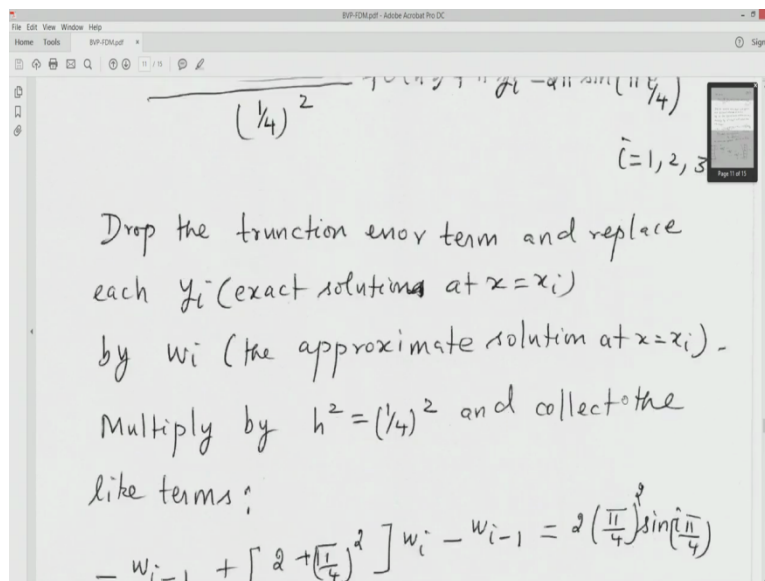 BVP-FDM.pdf - Adobe Acrobat Pro DC
File Edit View Window Help
Home Tools BVP-FDM.pdf × Sign
11 / 15
(1/4)^2
i=1, 2, 3
Page 11 of 15
Drop the trunction error term and replace
each yi (exact solutions at x=xi)
by wi (the approximate solution at x=xi).
Multiply by h^2 = (1/4)^2 and collect the
like terms:
- wi-1 + [2 + (π/4)^2] wi - wi-1 = 2(π/4)^2 sin(iπ/4)